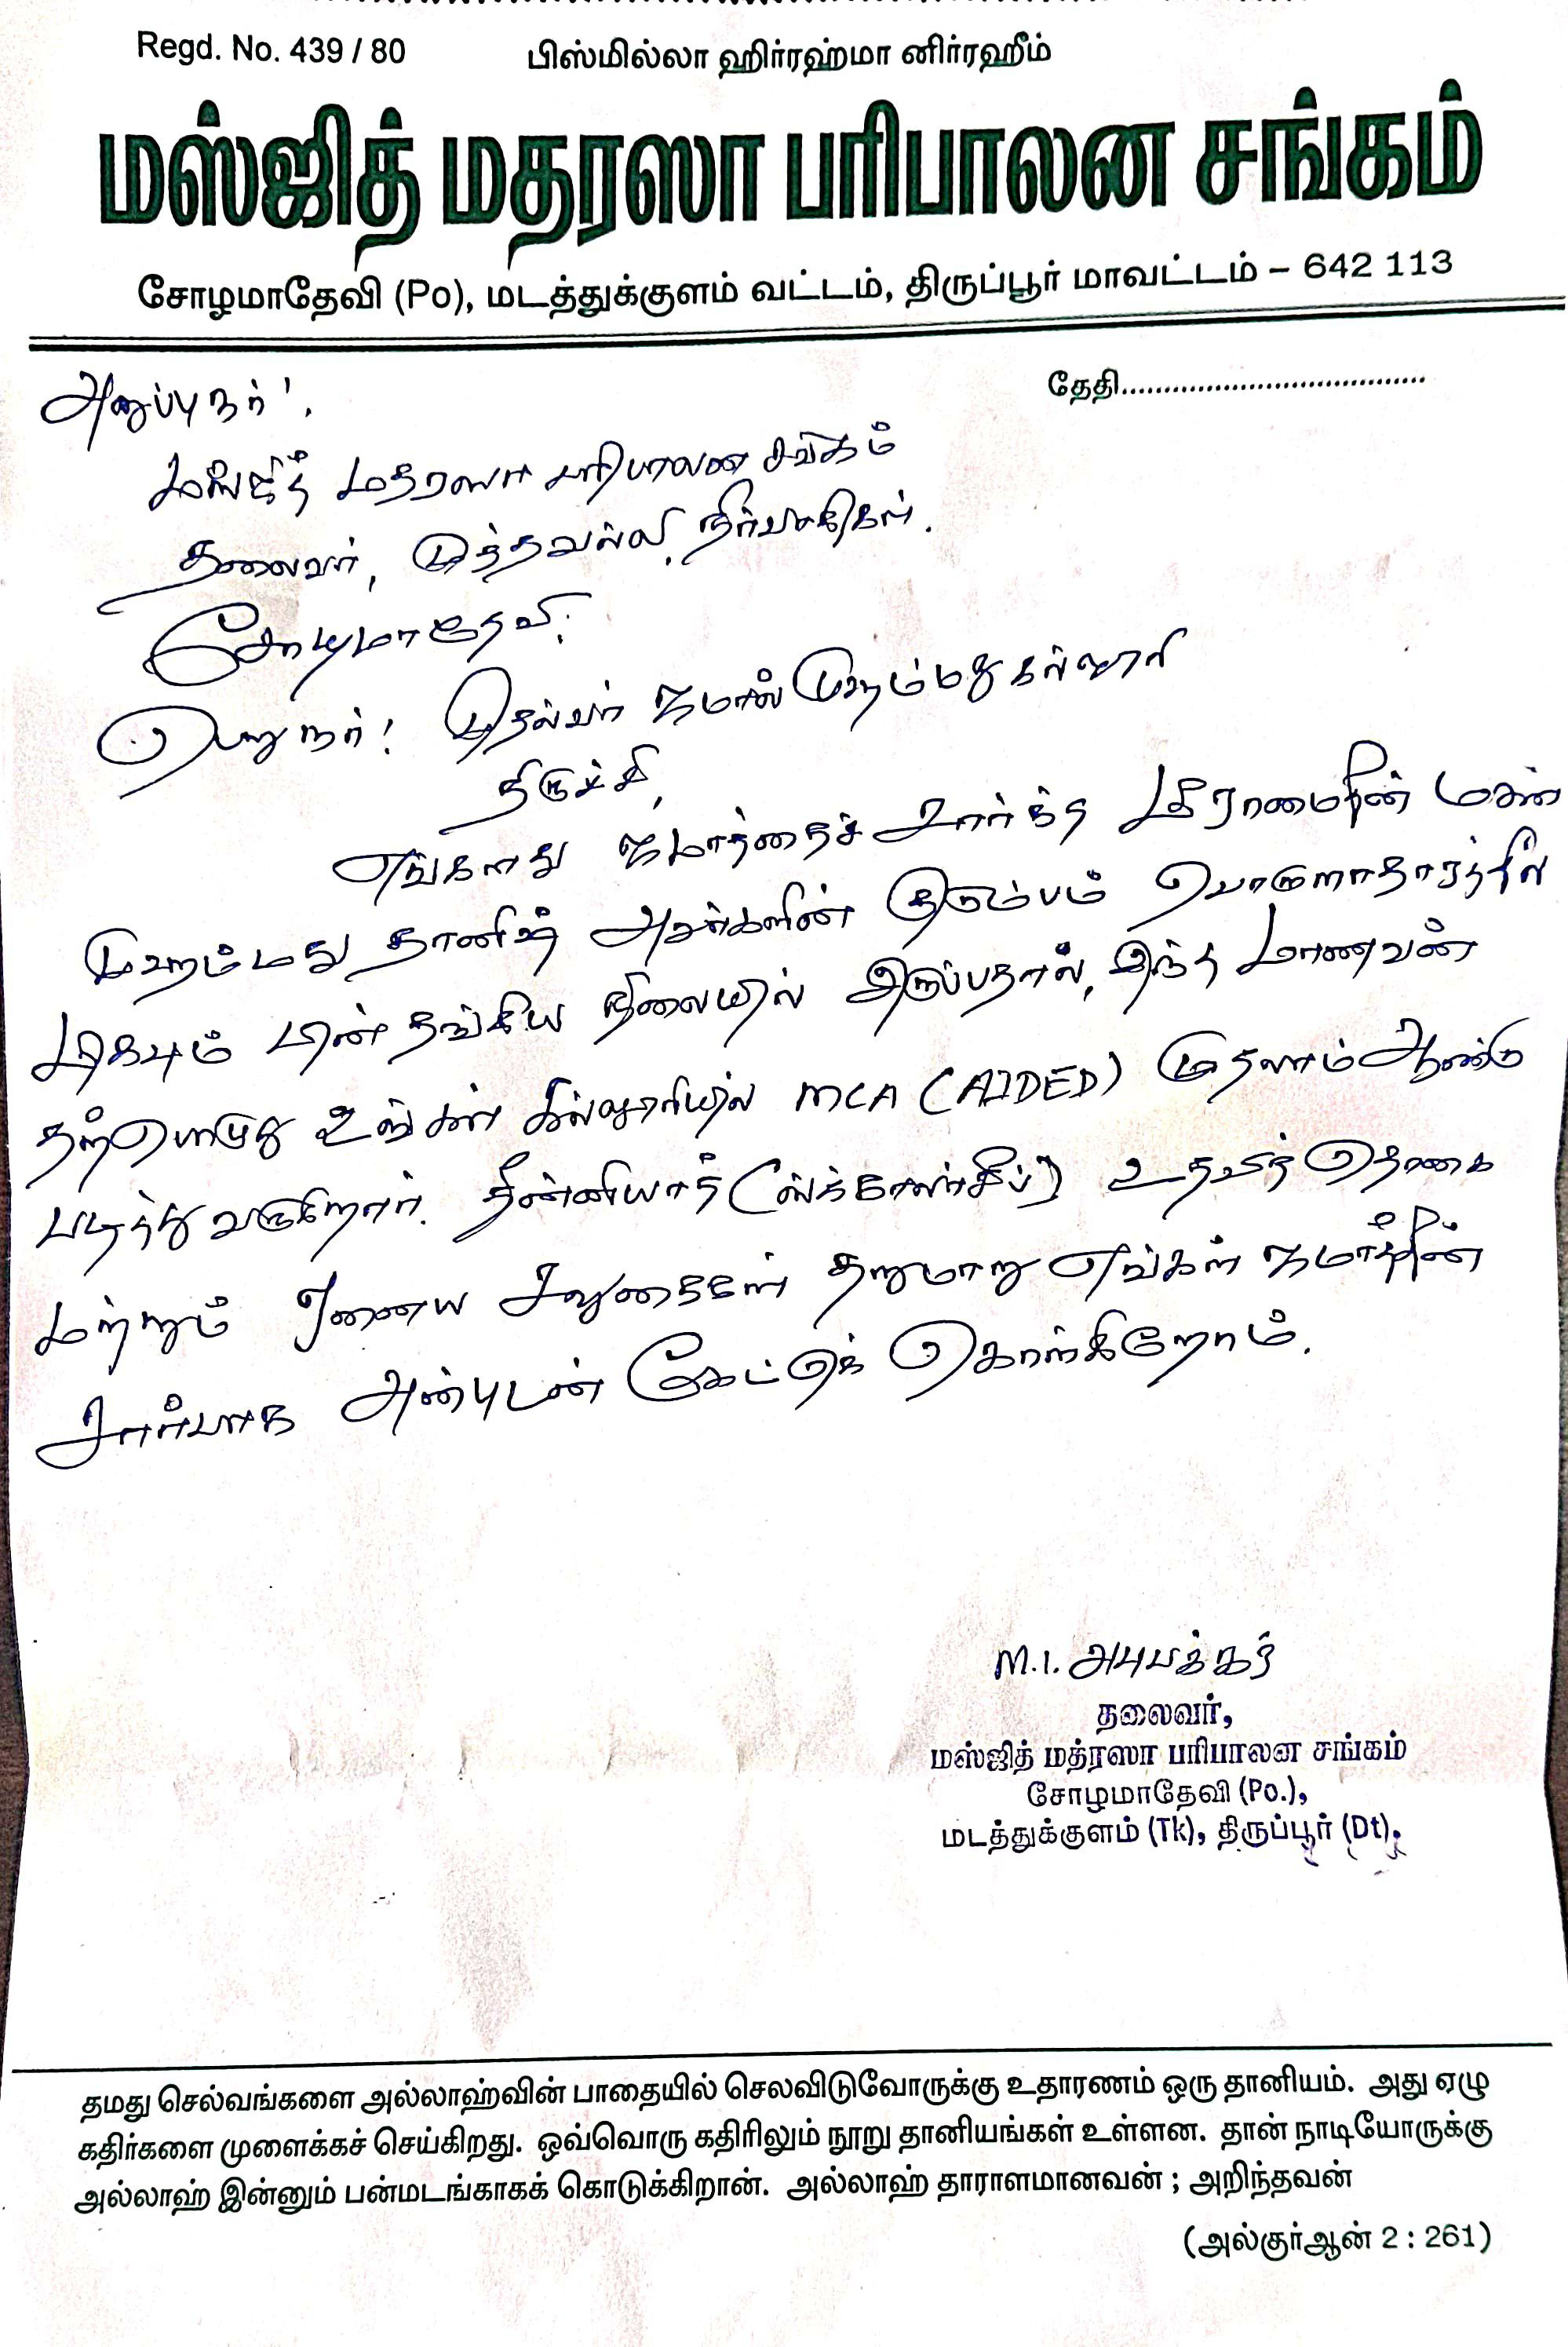 Regd. No. 439 / 80
பிஸ்மில்லா ஹிர்ரஹ்மா னிர்ரஹீம்
மஸ்ஜித் மதரஸா பரிபாலன சங்கம்
சோழமாதேவி (Po), மடத்துக்குளம் வட்டம், திருப்பூர் மாவட்டம் – 642 113
தேதி....................................
அனுப்புநர்:
மஸ்ஜித் மதரஸா பரிபாலன சங்கம்
தலைவர், முத்தவல்லி, நிர்வாகிகள்.
சோழமாதேவி.
பெறுநர்: முதல்வர் ஜமால் முஹம்மது கல்லூரி
திருச்சி,
எங்களது ஜமாத்தைச் சார்ந்த மகன்
முஹம்மது தானிஷ் அவர்களின் குடும்பம் பொருளாதாரத்தில்
மிகவும் பின் தங்கிய நிலையில் இருப்பதால், இந்த மாணவன்
தற்பொழுது உங்கள் கல்லூரியில் MCA (AIDED) முதலாம் ஆண்டு
படித்து வருகிறார். தீன்னியாத் (ஸ்காலர்சிப்) உதவித் தொகை
மற்றும் ஏனைய சலுகைகள் தருமாறு எங்கள் ஜமாத்தின்
சார்பாக அன்புடன் கேட்டுக் கொள்கிறோம்.
M.I. அபுபக்கர்
தலைவர்,
மஸ்ஜித் மத்ரஸா பரிபாலன சங்கம்
சோழமாதேவி (Po.),
மடத்துக்குளம் (Tk), திருப்பூர் (Dt).
தமது செல்வங்களை அல்லாஹ்வின் பாதையில் செலவிடுவோருக்கு உதாரணம் ஒரு தானியம். அது ஏழு
கதிர்களை முளைக்கச் செய்கிறது. ஒவ்வொரு கதிரிலும் நூறு தானியங்கள் உள்ளன. தான் நாடியோருக்கு
அல்லாஹ் இன்னும் பன்மடங்காகக் கொடுக்கிறான். அல்லாஹ் தாராளமானவன் ; அறிந்தவன்
(அல்குர்ஆன் 2 : 261)